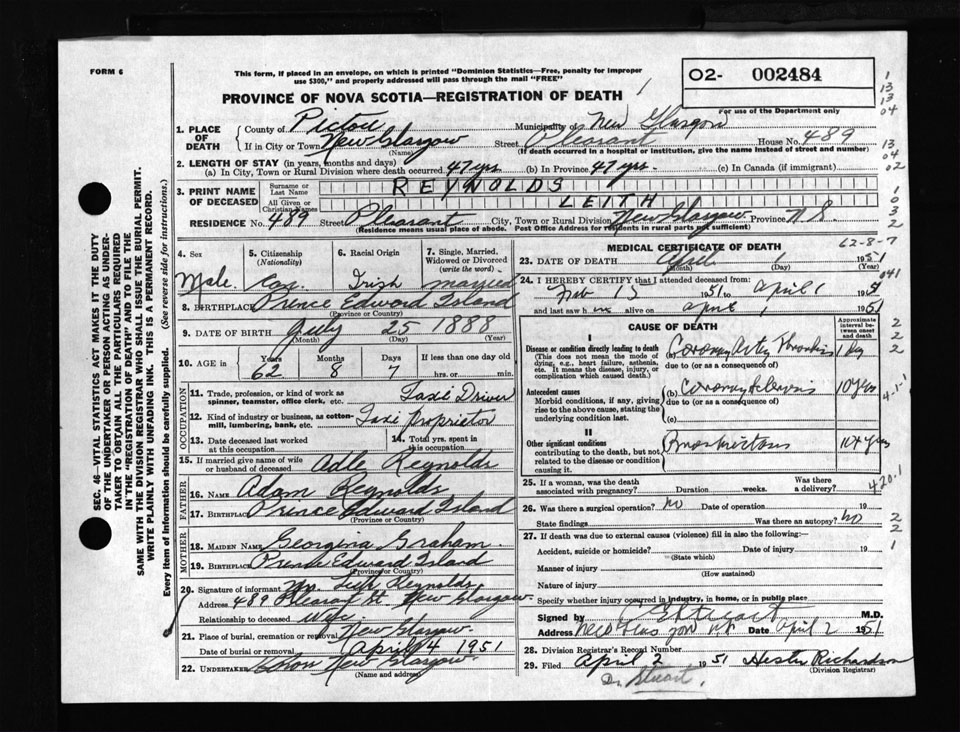 FORM 6
This form, if placed in an envelope, on which is printed "Dominion Statistics—Free, penalty for improper
use $300," and properly addressed will pass through the mail "FREE"
02- 002484
For use of the Department only
PROVINCE OF NOVA SCOTIA—REGISTRATION OF DEATH
1. PLACE OF DEATH
County of Pictou Municipality of New Glasgow
If in City or Town New Glasgow Street House No. 489
(Name) (If death occurred in a hospital or institution, give the name instead of street and number)
2. LENGTH OF STAY (in years, months and days)
(a) In City, Town or Rural Division where death occurred 47 yrs (b) In Province 47 yrs. (c) In Canada (if immigrant)
3. PRINT NAME OF DECEASED
Surname or Last Name REYNOLDS
All Given or Christian Names LEITH
RESIDENCE No. 489 Street Pleasant City, Town or Rural Division New Glasgow Province N.S.
(Residence means usual place of abode. Post Office Address for residents in rural parts not sufficient)
4. Sex
Male
5. Citizenship
(Nationality)
Can.
6. Racial Origin
Irish
7. Single, Married, Widowed or Divorced
(write the word)
married
8. BIRTHPLACE Prince Edward Island
(Province or Country)
9. DATE OF BIRTH July 25 1888
(Month) (Day) (Year)
10. AGE in
Years Months Days If less than one day old
62 8 7 hrs. or min.
OCCUPATION
11. Trade, profession, or kind of work as
spinner, teamster, office clerk, etc. Taxie Driver
12. Kind of industry or business, as cotton-
mill, lumbering, bank, etc. Taxi Proprietor
13. Date deceased last worked
at this occupation
14. Total yrs. spent in
this occupation
15. If married give name of wife
or husband of deceased Adle Reynolds
FATHER
16. NAME Adam Reynolds
17. BIRTHPLACE Prince Edward Island
(Province or Country)
MOTHER
18. MAIDEN NAME Georgina Graham
19. BIRTHPLACE Prince Edward Island
(Province or Country)
20. Signature of informant Mrs. Leith Reynolds
Address 489 Pleasant St. New Glasgow
Relationship to deceased Wife
21. Place of burial, cremation or removal New Glasgow
Date of burial or removal April 4 1951
22. UNDERTAKER New Glasgow
(Name and address)
MEDICAL CERTIFICATE OF DEATH
62-8-7
23. DATE OF DEATH April 1 1951
(Month) (Day) (Year)
24. I HEREBY CERTIFY that I attended deceased from:
Feb 15 1951 to April 1 1951
and last saw h im alive on April 1 1951
CAUSE OF DEATH
Approximate interval between onset and death
I
Disease or condition directly leading to death
(This does not mean the mode of
dying, e.g., heart failure, asthenia,
etc. It means the disease, injury, or
complication which caused death.)
(a) Coronary Artery Thrombosis
due to (or as a consequence of)
Antecedent causes
Morbid conditions, if any, giving
rise to the above cause, stating the
underlying condition last.
(b) Coronary Sclerosis 10 yrs
due to (or as a consequence of)
(c)
II
Other significant conditions
contributing to the death, but not
related to the disease or condition
causing it.
Bronchiectasis 10+ yrs
420.1
25. If a woman, was the death
associated with pregnancy? Duration weeks. Was there
a delivery?
26. Was there a surgical operation? No Date of operation 19
State findings Was there an autopsy? No
27. If death was due to external causes (violence) fill in also the following:—
Accident, suicide or homicide? Date of injury 19
(State which)
Manner of injury
(How sustained)
Nature of injury
Specify whether injury occurred in industry, in home, or in public place
Signed by M.D.
Address New Glasgow NS Date April 2 1951
28. Division Registrar's Record Number
29. Filed April 2 1951 Hester Richardson
(Division Registrar)
Dr. Stuart.
SEC. 46—VITAL STATISTICS ACT MAKES IT THE DUTY
OF THE UNDERTAKER OR PERSON ACTING AS UNDER-
TAKER TO OBTAIN ALL THE PARTICULARS REQUIRED
IN THE "REGISTRATION OF DEATH" AND TO FILE THE
SAME WITH THE DIVISION REGISTRAR WHO SHALL ISSUE THE BURIAL PERMIT.
WRITE PLAINLY WITH UNFADING INK. THIS IS A PERMANENT RECORD.
Every item of information should be carefully supplied. (See reverse side for instructions.)